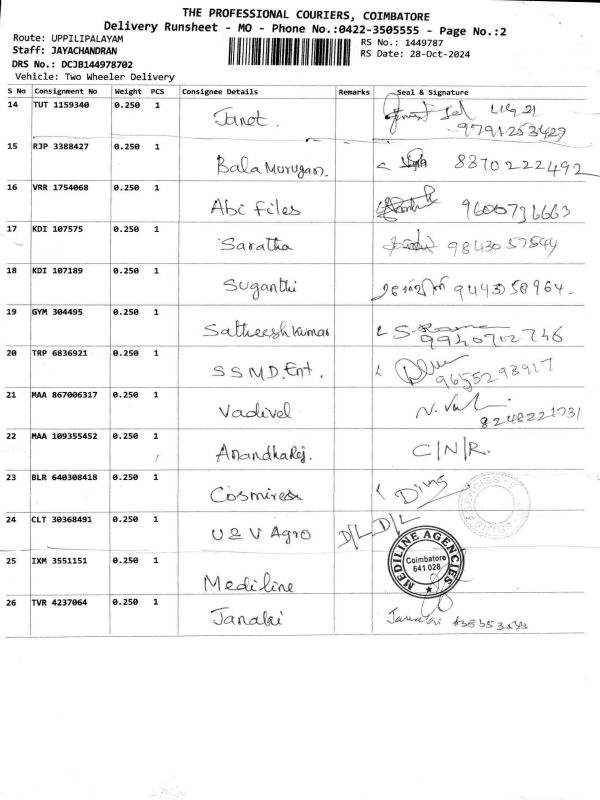 THE PROFESSIONAL COURIERS, COIMBATORE
Delivery Runsheet - MO - Phone No.:0422-3505555 - Page No.:2
Route: UPPILIPALAYAM
RS No.: 1449787
Staff: JAYACHANDRAN
RS Date: 28-Oct-2024
DRS No.: DCJB144978702
Vehicle: Two Wheeler Delivery
S No Consignment No Weight PCS Consignee Details Remarks Seal & Signature
14 TUT 1159340 0.250 1 Janet.
9791253429
15 RJP 3388427 0.250 1 Bala Murugan. 8870222492
16 VRR 1754068 0.250 1 Abi Files 9600731663
17 KDI 107575 0.250 1 Saratha 9843057544
18 KDI 107189 0.250 1 Suganthi 9443058964.
19 GYM 304495 0.250 1 Satheesh Kumar
9940712746
20 TRP 6836921 0.250 1 SSMD.Ent.
9655293917
21 MAA 867006317 0.250 1 Vadivel
8248221731
22 MAA 109355452 0.250 1 Anandharaj. C/N/R.
23 BLR 640308418 0.250 1
24 CLT 30368491 0.250 1 U2V Agro D/L D/L
25 IXM 3551151 0.250 1 Mediline
MEDILINE AGENCIES
Coimbatore
641 028
26 TVR 4237064 0.250 1 Janaki Janaki